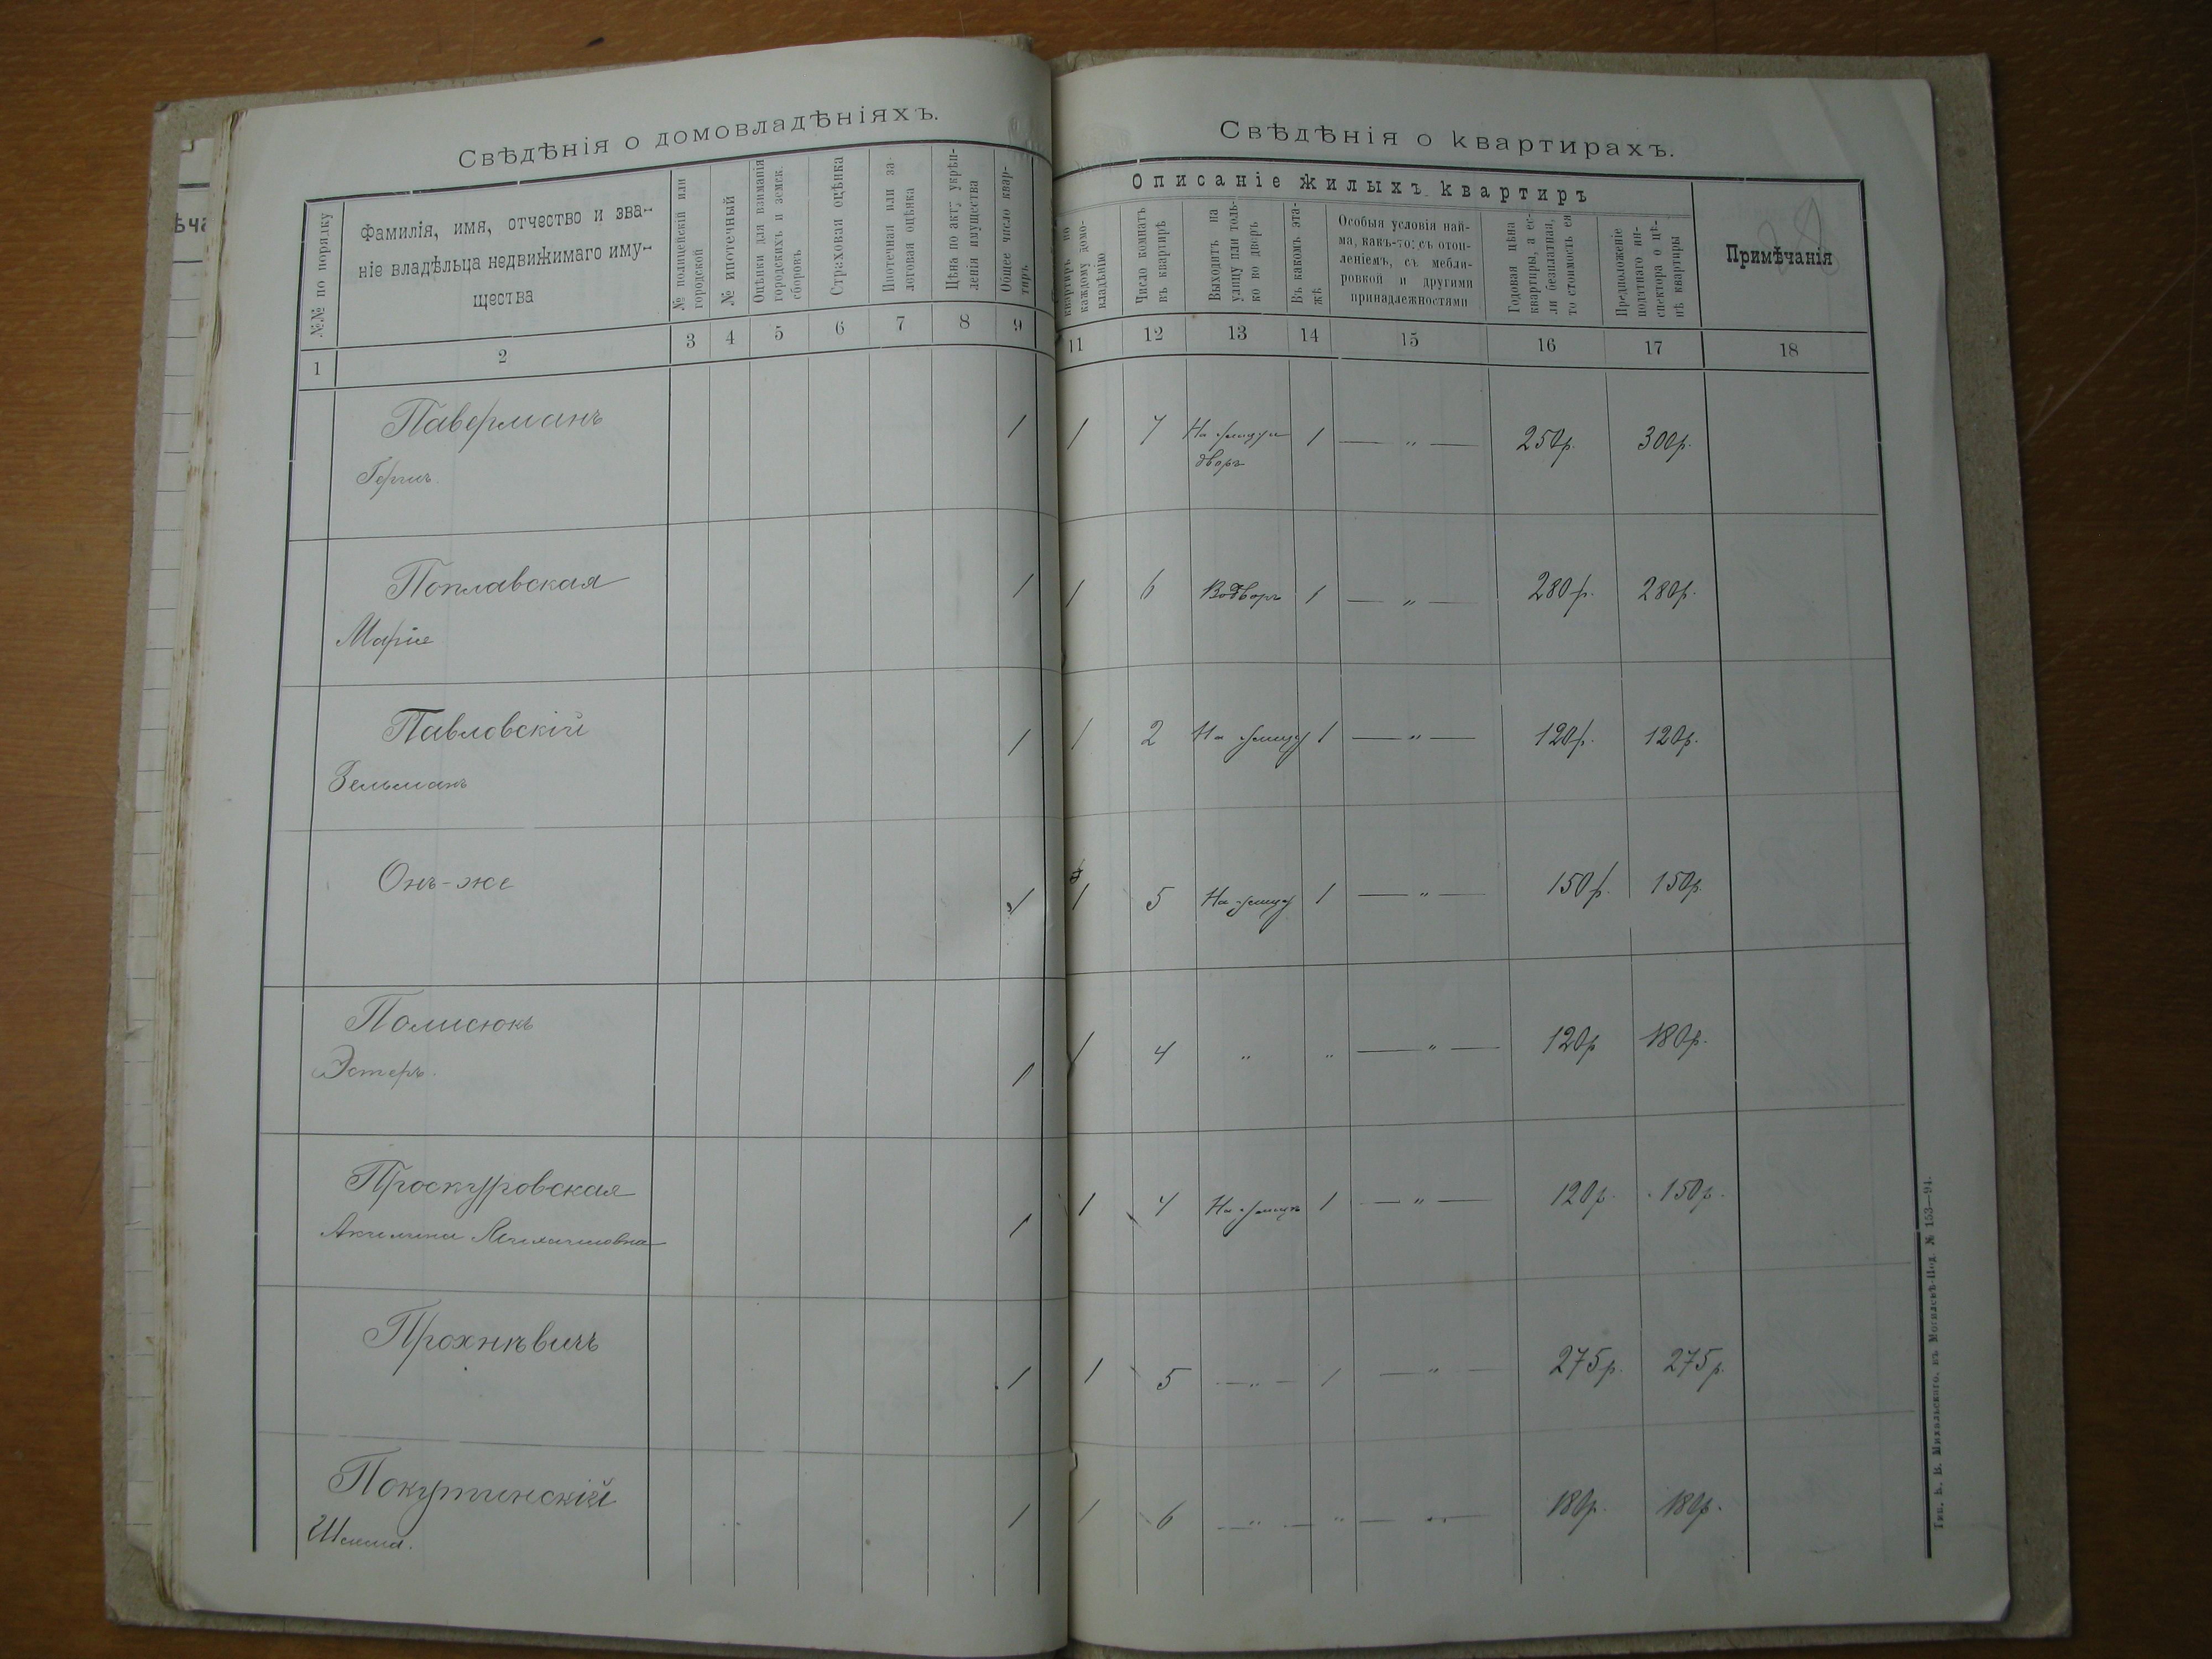 Свѣдѣнія о домовладѣніяхъ.
№№ по порядку
Фамилія, имя, отчество и зва-
ніе владѣльца недвижимаго иму-
щества
№ полицейскій или
городской
№ ипотечный
Оцѣнки для взиманія
городскихъ и земск.
сборовъ
Страховая оцѣнка
Ипотечная или за-
логовая оцѣнка
Цѣна по акту укрѣп-
ленія имущества
Общее число квар-
тиръ
1 2 3 4 5 6 7 8 9
Паверманъ 1
Поплавская 1
Марія
Павловскій 1
Зельманъ
Онъ-же 1
Полисюкъ
Эстеръ. 1
Проскуровская
Акилина Михайловна 1
Прохнѣвичъ 1
Покутинскій 1
Свѣдѣнія о квартирахъ.
Описаніе жилыхъ квартиръ
квартиръ по
каждому домо-
владѣнію
Число комнатъ
въ квартирѣ
Выходитъ на
улицу или толь-
ко во дворъ
Въ какомъ эта-
жѣ
Особыя условія най-
ма, какъ-то: съ отоп-
леніемъ, съ мебли-
ровкой и другими
принадлежностями
Годовая цѣна
квартиры, а ес-
ли безплатная,
то стоимость ея
Предположеніе
податнаго ин-
спектора о цѣ-
нѣ квартиры
Примѣчанія
11 12 13 14 15 16 17 18
1 7 На улицу и 1 — „ — 250р. 300р.
дворъ
1 6 Во дворъ 1 — „ — 280р. 280р.
1 2 На улицу 1 — „ — 120р. 120р.
1 5 На улицу 1 — „ — 150р. 150р.
1 4 „ „ — „ — 120р 180р.
1 4 На улицу 1 — „ — 120р. 150р.
1 5 — „ — 1 — „ — 275р. 275р.
1 6 — „ — „ — „ — 180р. 180р.
Тип. Б. В. Михальского, въ Могилевѣ-Под. № 153—94.